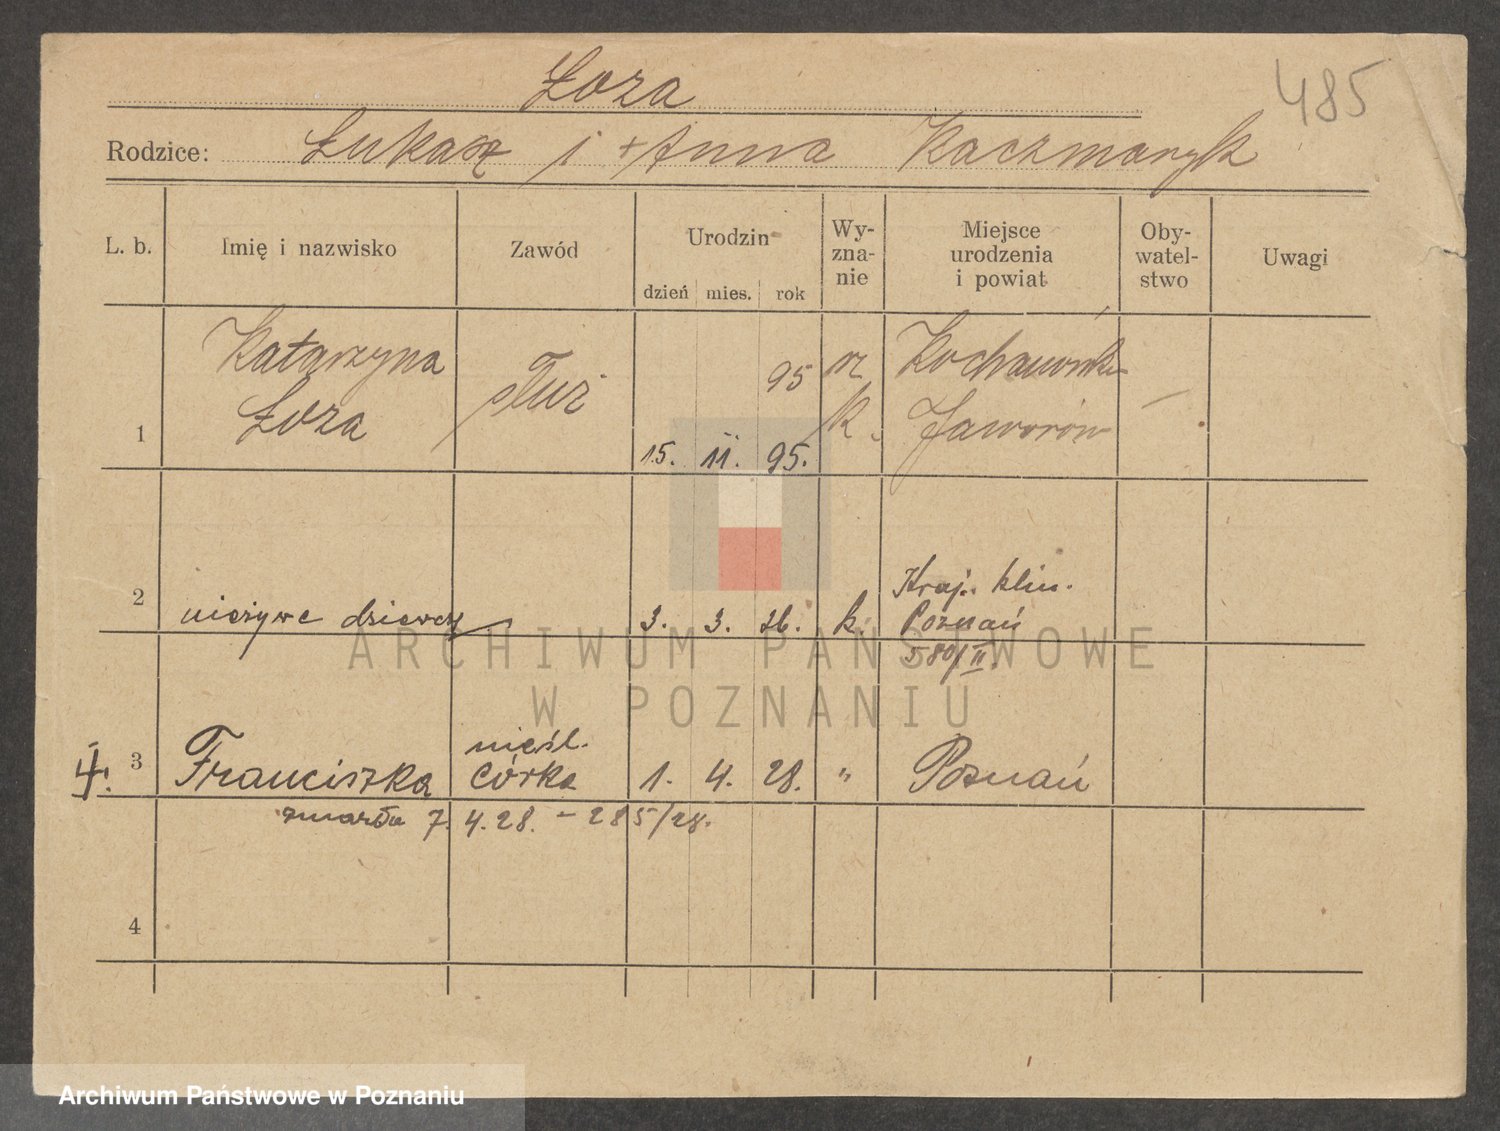 485
Łoza
Rodzice: Łukasz i +Anna Kaczmaryk
L. b. Imię i nazwisko Zawód Urodzin dzień mies. rok Wy-zna-nie Miejsce urodzenia i powiat Oby-watel-stwo Uwagi
1 Katarzyna Łoza służ 95 rz k. Jaworów —
15. 11. 95.
2 nieżywe dziewczę 3. 3. 26. k. Kraj. klin. Poznań
580/II.
3 Franciszka nieśl. córka 1. 4. 28. " Poznań
zmarła 7. 4. 28. – 285/28.
4
ARCHIWUM PAŃSTWOWE
W POZNANIU
Archiwum Państwowe w Poznaniu